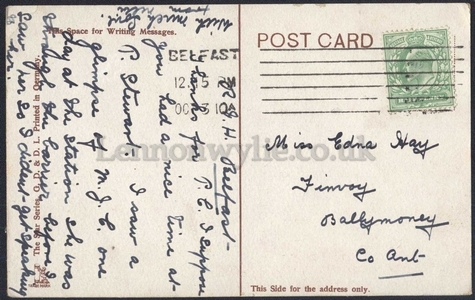 This Space for Writing Messages.
POST CARD
BELFAST
12.15 PM
OC 3 10
R.J.H. Belfast -
Thanks for P.C. I suppose
you had a nice time at
P. Stewart. I saw a
glimpse of M.J. C one
day at the Station she was
through the barrier before I
saw her so I dident get speaking
to her
With much love
from
Miss Edna Hay
Finvoy
Ballymoney
Co Ant-
The Star Series. G. D. & D. L. Printed in Germany.
This Side for the address only.
Lennonwylie.co.uk